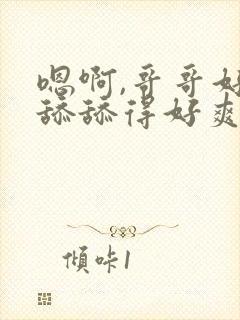 嗯啊,哥哥好
舔舔得好爽
傾咔1